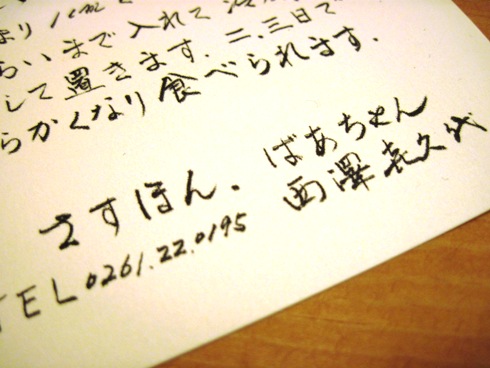 より 1cmと
らいまで入れて
して置きます。二、三日で
らかくなり食べられます。
さすほん. ばあちゃん
西澤喜久代
TEL 0261.22.0195